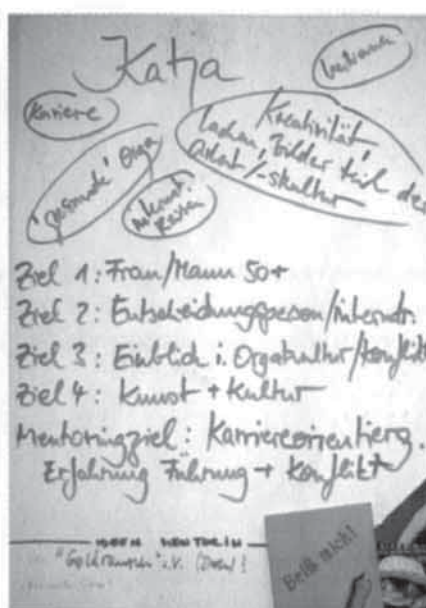 Katja
Vertrauen
Karriere
Kreativität
Lachen, Bilder teil der
Arbeit/-skultur
'gesunde' Orga
internat.
Reisen
Ziel 1: Frau/Mann 50+
Ziel 2: Entscheidungsperson/internat.
Ziel 3: Einblick i. Orgakultur/Konflikt
Ziel 4: Kunst + Kultur
Mentoringziel: Karriereorientierg.
Erfahrung Führung + Konflikt
IDEEN MENTORIN
"Goldrausch" e.V.
Beiß mich!